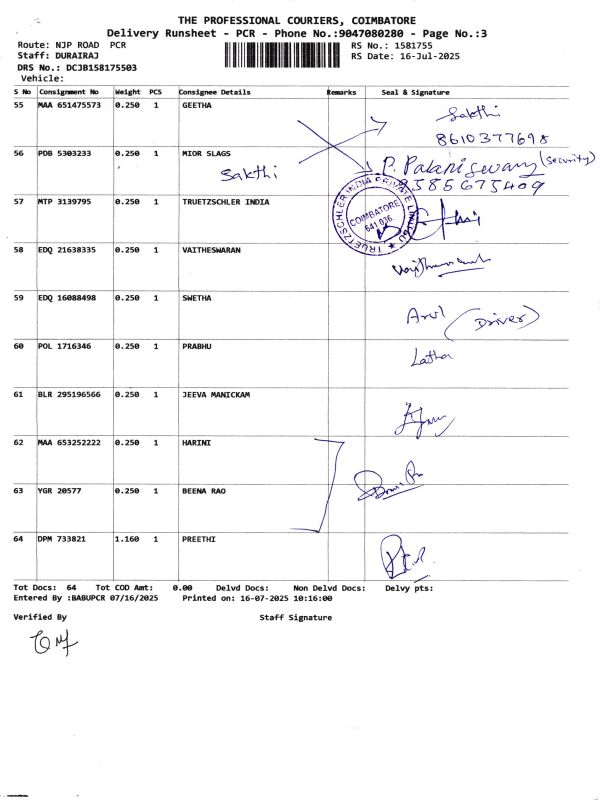 THE PROFESSIONAL COURIERS, COIMBATORE
Delivery Runsheet - PCR - Phone No.:9047080280 - Page No.:3
Route: NJP ROAD PCR
RS No.: 1581755
Staff: DURAIRAJ
RS Date: 16-Jul-2025
DRS No.: DCJB158175503
Vehicle:
S No Consignment No Weight PCS Consignee Details Remarks Seal & Signature
55 MAA 651475573 0.250 1 GEETHA
Sakthi
8610377698
56 PDB 5303233 0.250 1 MIOR SLAGS
Sakthi
P. Palaniswamy (Security)
9585675409
57 MTP 3139795 0.250 1 TRUETZSCHLER INDIA
TRUETZSCHLER INDIA PRIVATE LIMITED
COIMBATORE
641 036.
58 EDQ 21638335 0.250 1 VAITHESWARAN
59 EDQ 16088498 0.250 1 SWETHA
Arul (Driver)
60 POL 1716346 0.250 1 PRABHU
Latha
61 BLR 295196566 0.250 1 JEEVA MANICKAM
62 MAA 653252222 0.250 1 HARINI
63 YGR 20577 0.250 1 BEENA RAO
64 DPM 733821 1.160 1 PREETHI
Tot Docs: 64 Tot COD Amt: 0.00 Delvd Docs: Non Delvd Docs: Delvy pts:
Entered By :BABUPCR 07/16/2025 Printed on: 16-07-2025 10:16:00
Verified By Staff Signature